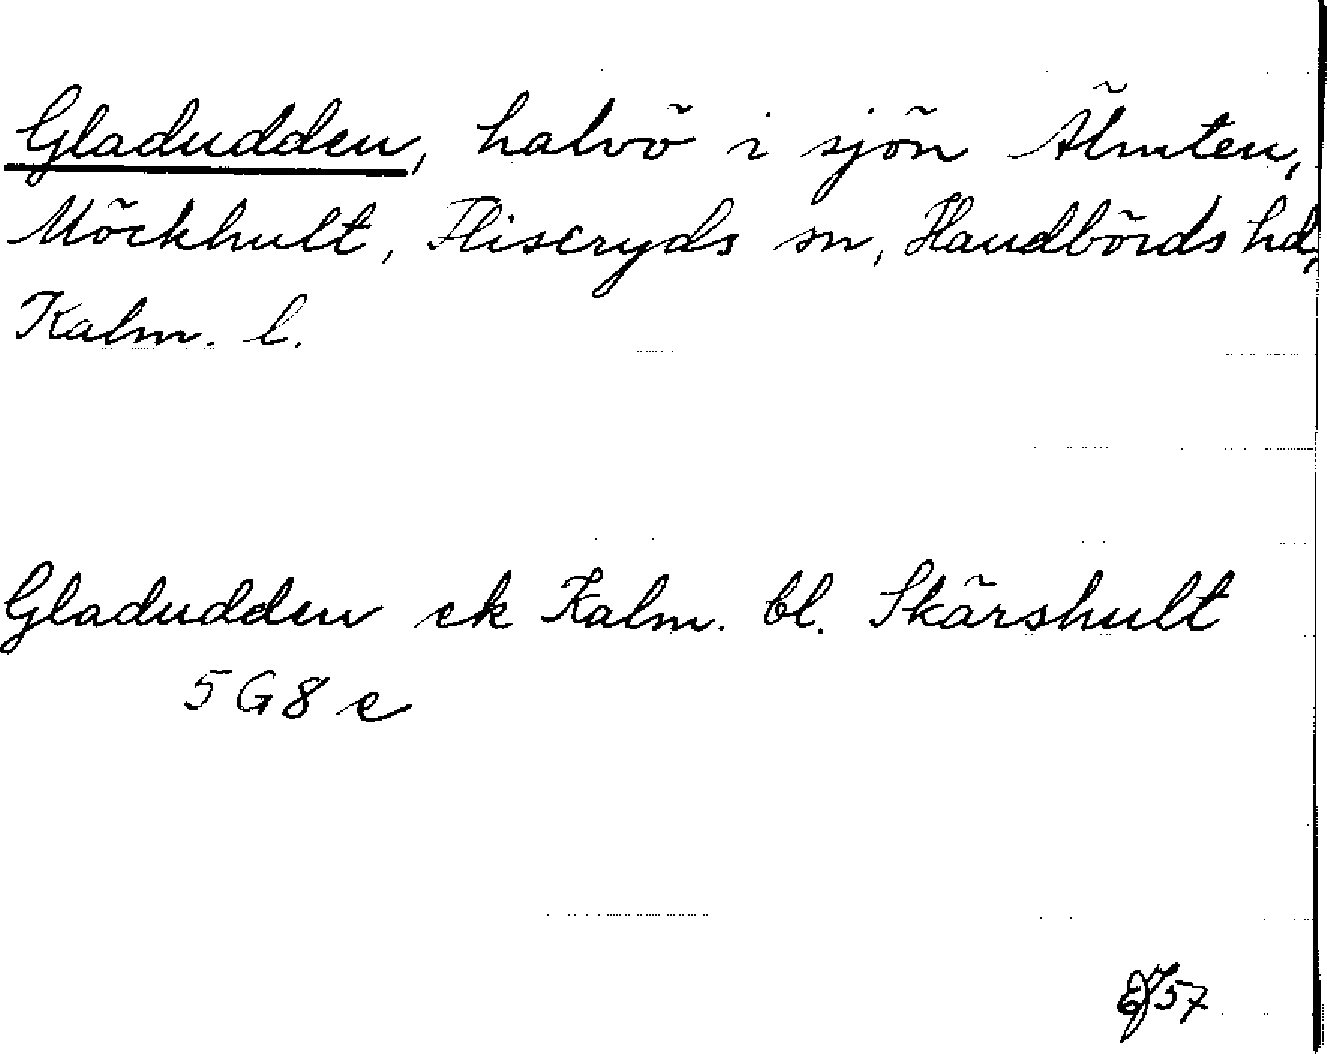 Gladudden, halvö i sjön Älmten,
Möckhult, Fliseryds sn, Handbörds hd,
Kalm. l.
Gladudden ek Kalm. bl. Skärshult
5 G 8 e
57